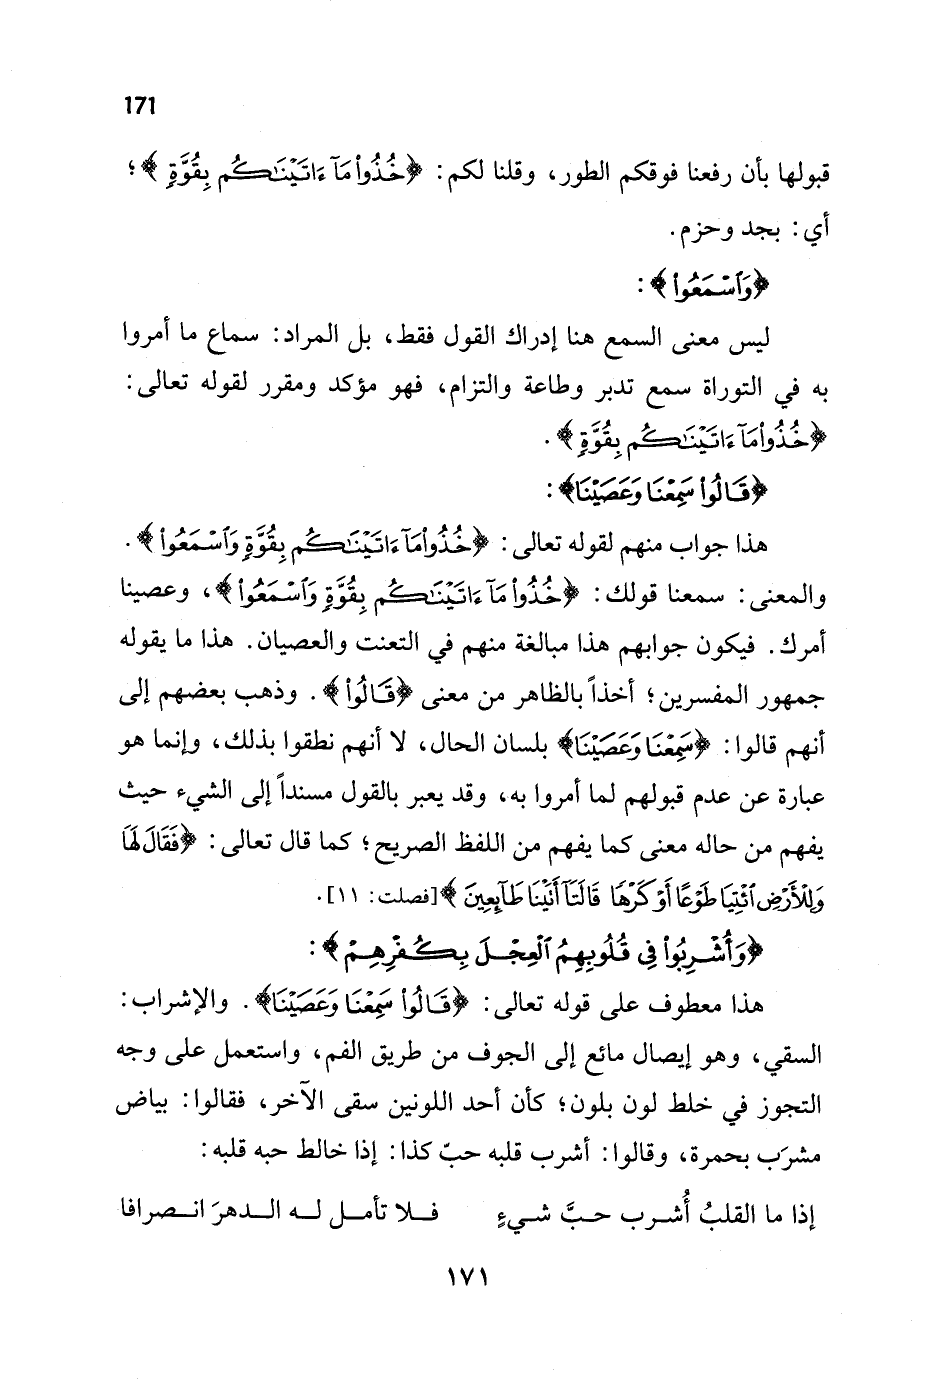 171
قبولها بأن رفعنا فوقكم الطور، وقلنا لكم: ﴿خُذُوا۟ مَآ ءَاتَيْنَـٰكُم بِقُوَّةٍ﴾؛
أي: بجد وحزم.
﴿وَٱسْمَعُوا۟﴾:
ليس معنى السمع هنا إدراك القول فقط، بل المراد: سماع ما أمروا
به في التوراة سمع تدبر وطاعة والتزام، فهو مؤكد ومقرر لقوله تعالى:
﴿خُذُوا۟ مَآ ءَاتَيْنَـٰكُم بِقُوَّةٍ﴾.
﴿قَالُوا۟ سَمِعْنَا وَعَصَيْنَا﴾:
هذا جواب منهم لقوله تعالى: ﴿خُذُوا۟ مَآ ءَاتَيْنَـٰكُم بِقُوَّةٍ وَٱسْمَعُوا۟﴾.
والمعنى: سمعنا قولك: ﴿خُذُوا۟ مَآ ءَاتَيْنَـٰكُم بِقُوَّةٍ وَٱسْمَعُوا۟﴾، وعصينا
أمرك. فيكون جوابهم هذا مبالغة منهم في التعنت والعصيان. هذا ما يقوله
جمهور المفسرين؛ أخذاً بالظاهر من معنى ﴿قَالُوا۟﴾. وذهب بعضهم إلى
أنهم قالوا: ﴿سَمِعْنَا وَعَصَيْنَا﴾ بلسان الحال، لا أنهم نطقوا بذلك، وإنما هو
عبارة عن عدم قبولهم لما أمروا به، وقد يعبر بالقول مسنداً إلى الشيء حيث
يفهم من حاله معنى كما يفهم من اللفظ الصريح؛ كما قال تعالى: ﴿فَقَالَ لَهَا
وَلِلْأَرْضِ ٱئْتِيَا طَوْعًا أَوْ كَرْهًا قَالَتَآ أَتَيْنَا طَآئِعِينَ﴾ [فصلت: ١١].
﴿وَأُشْرِبُوا۟ فِى قُلُوبِهِمُ ٱلْعِجْلَ بِكُفْرِهِمْ﴾:
هذا معطوف على قوله تعالى: ﴿قَالُوا۟ سَمِعْنَا وَعَصَيْنَا﴾. والإشراب:
السقي، وهو إيصال مائع إلى الجوف من طريق الفم، واستعمل على وجه
التجوز في خلط لون بلون؛ كأن أحد اللونين سقى الآخر، فقالوا: بياض
مشرَب بحمرة، وقالوا: أشرب قلبه حبّ كذا: إذا خالط حبه قلبه:
إذا ما القلبُ أُشرب حبَّ شيءٍ فلا تأمل له الدهرَ انصرافا
١٧١